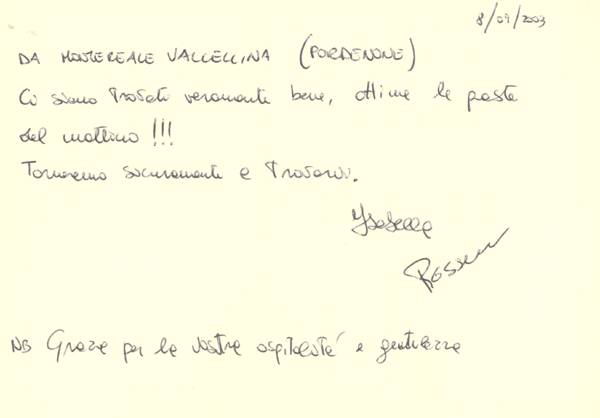 8/09/2003
DA MONTEREALE VALCELLINA (PORDENONE)
Ci siamo trovati veramente bene, ottime le paste
del mattino !!!
Torneremo sicuramente a trovarvi.
Isabella
NB Grazie per la vostra ospitalità e gentilezza